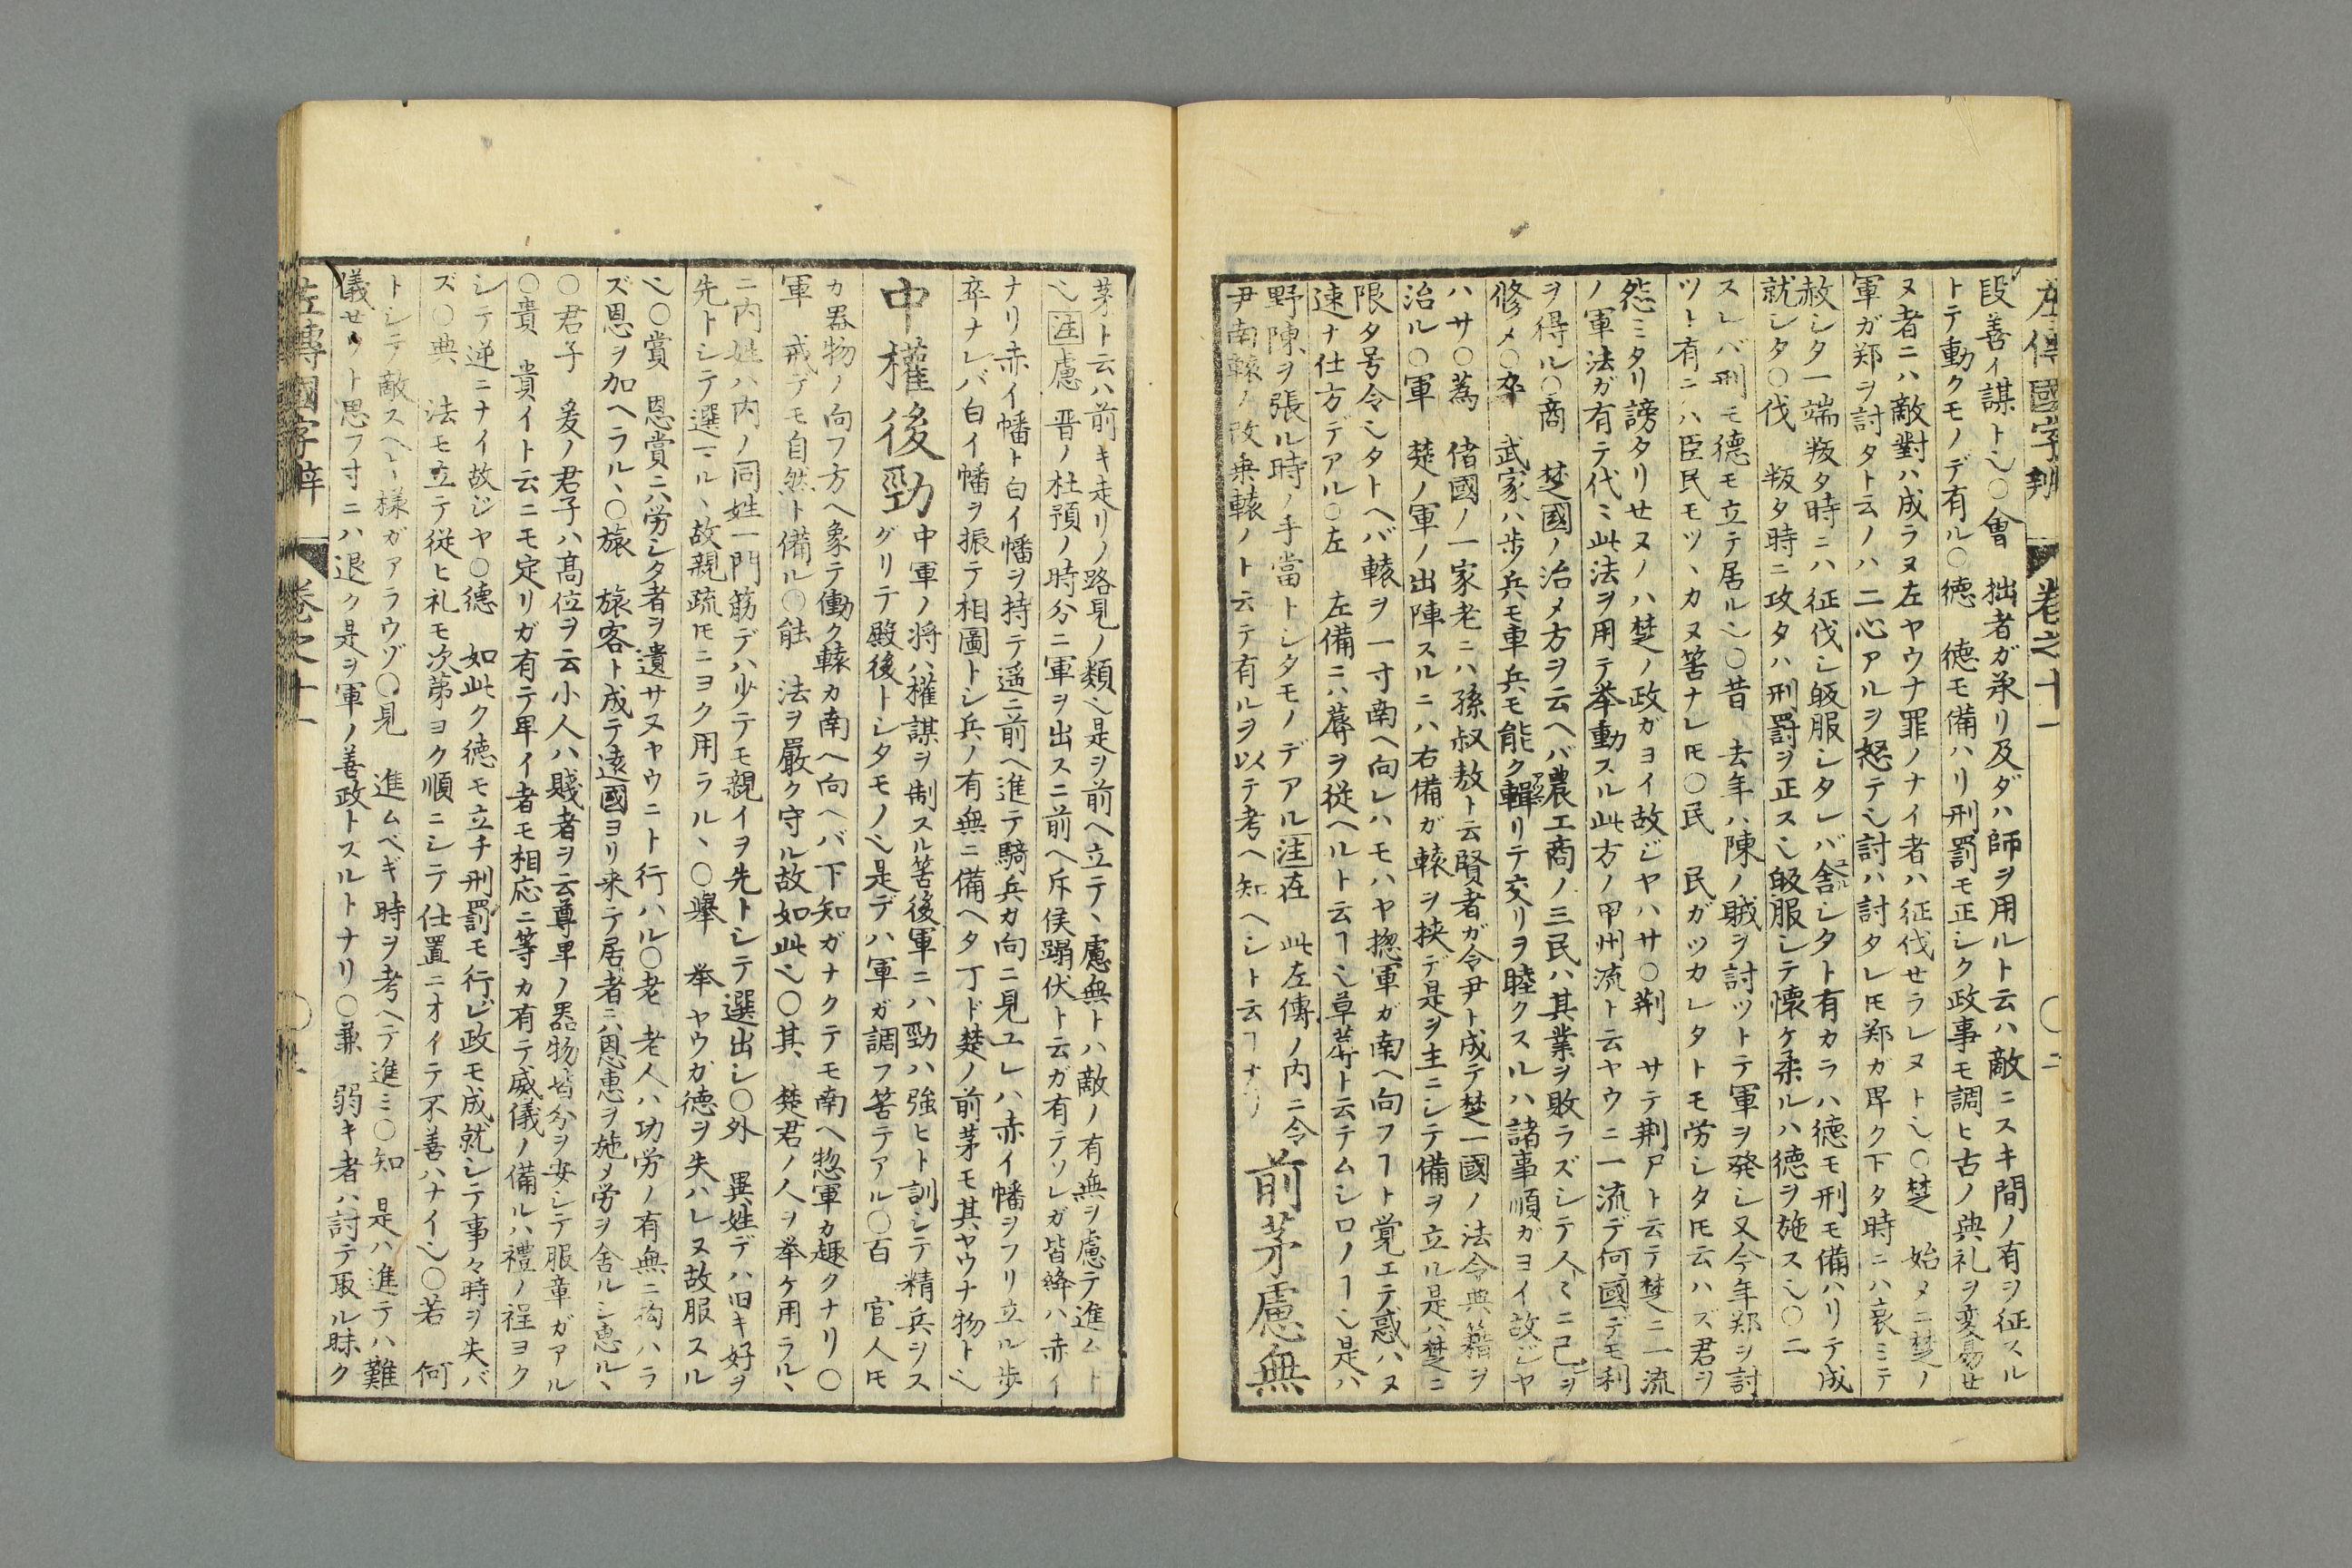 左傳國字辨 卷之十一 〇二
段善イ謀ト〻〇會 拙者ガ承リ及ダハ師ヲ用ルト云ハ敵ニスキ間ノ有ヲ征スル
トテ動クモノデ有ル〇德 徳モ備ハリ刑罰モ正シク政事モ調ヒ古ノ典礼ヲ変易せ
ヌ者ニハ敵對ハ成ラヌ左ヤウナ罪ノナイ者ハ征伐せラレヌト〻〇楚 始メニ楚ノ
軍ガ郑ヲ討タト云ノハ二心アルヲ怒テ〻討ハ討タレ𪜈郑ガ卑ク下タ時ニハ哀ミテ
赦シタ一端叛タ時ニハ征伐シ皈服シタレバ舎シタト有カラハ徳モ刑モ備ハリテ成
就シタ〇伐 叛タ時ニ政タハ刑罰ヲ正ス〻皈服シテ懐ケ柔ルハ徳ヲ施ス〻〇二
スレバ刑モ德モ立テ居ル〻〇昔 去年ハ陳ノ賊ヲ討ツトテ軍ヲ発シ又今年郑ヲ討
ツト有ニハ臣民モツヽカヌ筈ナレ𪜈〇民 民ガツカレタトモ労シタ𪜈云ハズ君ヲ
怨ミタリ謗タリせヌノハ楚ノ政ガヨイ故ジヤハサ〇荆 サテ荆尸ト云テ楚ニ一流
ノ軍法ガ有テ代〻此法ヲ用テ举動スル此方ノ甲州流ト云ヤウニ一流デ何國デモ利
ヲ得ル〇商 楚國ノ治メ方ヲ云ヘバ農工商ノ三民ハ其業ヲ敗ラズシテ人〻ニ己ヲ
修メ〇卒 武家ハ歩ノ兵モ車兵モ能ク輯リテ交リヲ睦クスルハ諸事順ガヨイ故ジヤ
ハサ〇蒍 偖國ノ一家老ニハ孫叔敖ト云賢者ガ令尹ト成テ楚一國ノ法令典籍ヲ
治ル〇軍 楚ノ軍ノ出陣スルニハ右備ガ轅ヲ挟デ是ヲ主ニシテ備ヲ立ル是ハ楚ニ
限タ号令シタトヘバ轅ヲ一寸南ヘ向レハモハヤ揔軍ガ南ヘ向フヿト覚エテ惑ハヌ
速ナ仕方デアル〇左 左備ニハ蓐ヲ従ヘルト云ヿ〻草蓐ト云テムシロノヿ〻是ハ
野陳ヲ張ル時ノ手當トシタモノデアル注在 此左傳ノ内ニ令
尹南轅ノ改乗轅ノト云テ有ルヲ以テ考ヘ知ヘシト云ヿナリ
前茅慮無
茅ト云ハ前キ走リノ路見ノ類〻是ヲ前ヘ立テヽ慮無トハ敵ノ有無ヲ慮テ進ムト
〻注慮 晋ノ杜預ノ時分ニ軍ヲ出スニ前ヘ斥候蹋伏ト云ガ有テソレガ皆絳ハ赤イ
ナリ赤イ幡ト白イ幡ヲ持テ遥ニ前ヘ進テ騎兵カ向ニ見ユレハ赤イ幡ヲフリ立ル歩
卒ナレバ白イ幡ヲ振テ相圖トシ兵ノ有無ニ備ヘタ丁ド楚ノ前茅モ其ヤウナ物ト〻
中權後勁
中軍ノ将ハ權謀ヲ制スル筈後軍ニハ勁ハ強ヒト訓シテ精兵ヲス
グリテ殿後トシタモノ〻是デハ軍ガ調フ筈テアル〇百 官人𪜈
カ器物ノ向フ方ヘ象テ働ク轅カ南ヘ向ヘバ下知ガナクテモ南ヘ惣軍カ趣クナリ〇
軍 戒デモ自然ト備ル〇能 法ヲ嚴ク守ル故如此〻〇其 楚君ノ人ヲ挙ケ用ラルヽ
ニ内姓ハ内ノ同姓一門筋デハ少テモ親イヲ先トシテ選出シ〇外 異姓デハ旧キ好ヲ
先トシテ選マルヽ故親疏𪜈ニヨク用ラルヽ〇舉 挙ヤウガ徳ヲ失ハレヌ故服スル
〻〇賞 恩賞ニハ労シタ者ヲ遺サヌヤウニト行ハル〇老 老人ハ功労ノ有無ニ拘ハラ
ズ恩ヲ加ヘラルヽ〇旅 旅客ト成テ遠國ヨリ来テ居者ニハ恩恵ヲ施メ労ヲ舎ルシ恵ルヽ
〇君子 爰ノ君子ハ髙位ヲ云小人ハ賤者ヲ云尊卑ノ器物皆分ヲ安シテ服章ガアル
〇貴 貴イト云ニモ定リガ有テ卑イ者モ相応ニ等カ有テ威儀ノ備ルハ禮ノ程ヨク
シテ逆ニナイ故ジヤ〇德 如此ク徳モ立チ刑罰モ行ビ政モ成就シテ事々時ヲ失バ
ズ〇典 法モ立テ従ヒ礼モ次第ヨク順ニシテ仕置ニオイテ不善ハナイ〻〇若 何
トシテ敵スヘキ様ガアラウゾ〇見 進ムベギ時ヲ考ヘテ進ミ〇知 是ハ進テハ難
儀せウト思フ寸ニハ退ク是ヲ軍ノ善政トスルトナリ〇兼 弱キ者ハ討テ取ル昧ク
左傳國字辨 卷之十一